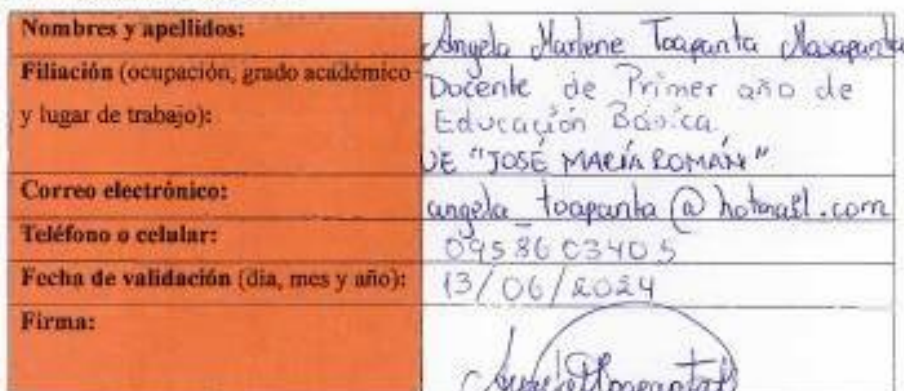 Nombres y apellidos:
Angela Marlene Toapanta Masapanta
Filiación (ocupación, grado académico
y lugar de trabajo):
Docente de Primer año de
Educación Básica.
UE "JOSÉ MARÍA ROMÁN"
Correo electrónico:
angela_toapanta@hotmail.com
Teléfono o celular:
0958603405
Fecha de validación (dia, mes y año):
13/06/2024
Firma: